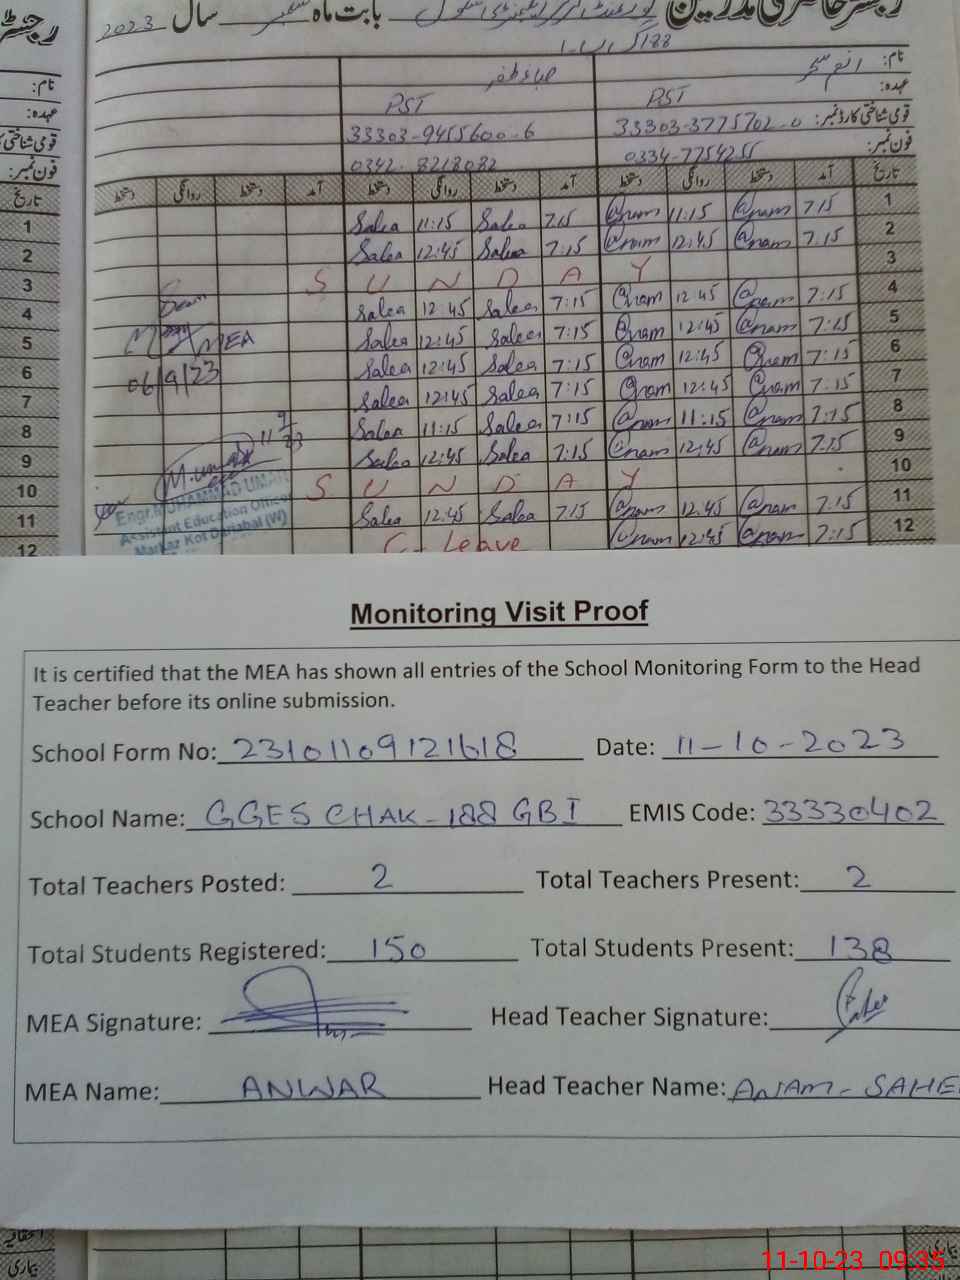 رجسٹر حاضری مدرسین گورنمنٹ گرلز سکول بابت ماہ ستمبر سال 2023
188 گ ب 1
نام: انعم سحر
عہدہ: PST PST
قومی شناختی کارڈ نمبر: 33303-3775702-0 33303-9455600-6
فون نمبر: 0334-7754255 0342-8218082
تاریخ آمد دستخط روانگی دستخط آمد دستخط روانگی دستخط آمد دستخط روانگی دستخط تاریخ
1 Salea 11:15 Salea 7.15 @nam 11:15 @nam 7.15 1
2 Salea 12:45 Salea 7:15 @nam 12:45 @nam 7.15 2
3 S U N D A Y 3
4 Salea 12:45 Salea 7:15 @nam 12 45 @nam 7:15 4
5 MEA Salea 12:45 Salea 7:15 @nam 12:45 @nam 7:15 5
6 06/9/23 Salea 12:45 Salea 7:15 @nam 12:45 @nam 7:15 6
7 Salea 12:45 Salea 7:15 @nam 12:45 @nam 7:15 7
8 11/9/23 Salea 11:15 Salea 7:15 @nam 11:15 @nam 7:15 8
9 Salea 12:45 Salea 7:15 @nam 12:45 @nam 7.15 9
10 S U N D A Y 10
11 Salea 12:45 Salea 7.15 @nam 12:45 @nam 7.15 11
12 C-Leave @nam 12:45 @nam 7:15 12
Engr. MUHAMMAD UMAR
Assistant Education Officer
Markaz Kot Danabal (W)
Monitoring Visit Proof
It is certified that the MEA has shown all entries of the School Monitoring Form to the Head
Teacher before its online submission.
School Form No: 23101109121618 Date: 11-10-2023
School Name: GGES CHAK-188 GBI EMIS Code: 33330402
Total Teachers Posted: 2 Total Teachers Present: 2
Total Students Registered: 150 Total Students Present: 138
MEA Signature: Head Teacher Signature:
MEA Name: ANWAR Head Teacher Name: ANAM-SAHE
اتفاقیہ
بیماری
11-10-23 09:35